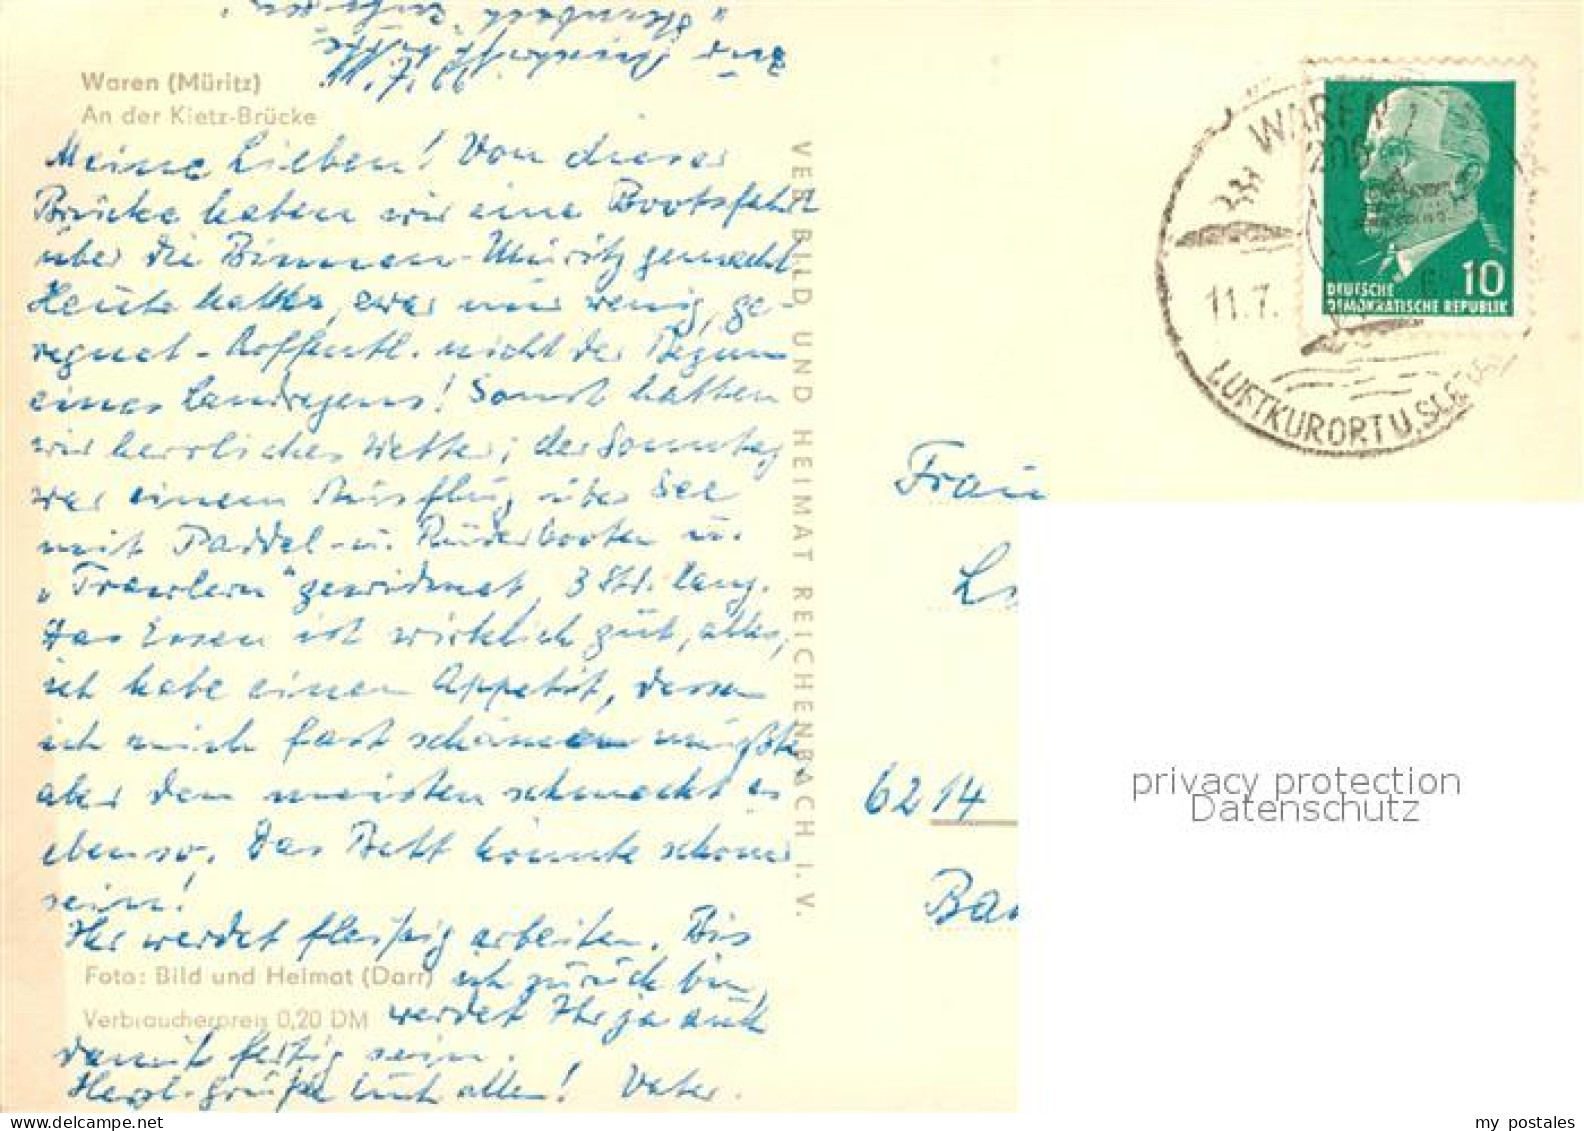 Waren (Müritz)
An der Kietz-Brücke
Meine Lieben! Von dieser
Brücke haben wir eine Bootsfahrt
über die Binnen-Müritz gemacht
Heute hatte es, zwar nur wenig, ge-
regnet - hoffentl. nicht der Beginn
eines Landregens! Sonst hatten
wir herrliches Wetter; der Sonntag
war einem Ausflug über See
mit Paddel- u. Ruderbooten u.
"Trawlern" gewidmet, 3 Std. lang.
Das Essen ist wirklich gut, alles,
ich habe einen Appetit, dessen
ich mich fast schämen müßte,
aber den meisten schmeckt es
ebenso. Das Bett könnte schöner
sein!
Ihr werdet fleißig arbeiten. Bis
ich zurück bin,
werdet Ihr ja auch
damit fertig sein.
Herzl. Grüße Euch allen! Vater.
Foto: Bild und Heimat (Darr)
Verbraucherpreis 0,20 DM
VEB BILD UND HEIMAT REICHENBACH I. V.
WAREN
11.7.
LUFTKURORT U. SEE
10
DEUTSCHE
DEMOKRATISCHE REPUBLIK
Frau
6214
Ba
privacy protection
Datenschutz
my postales